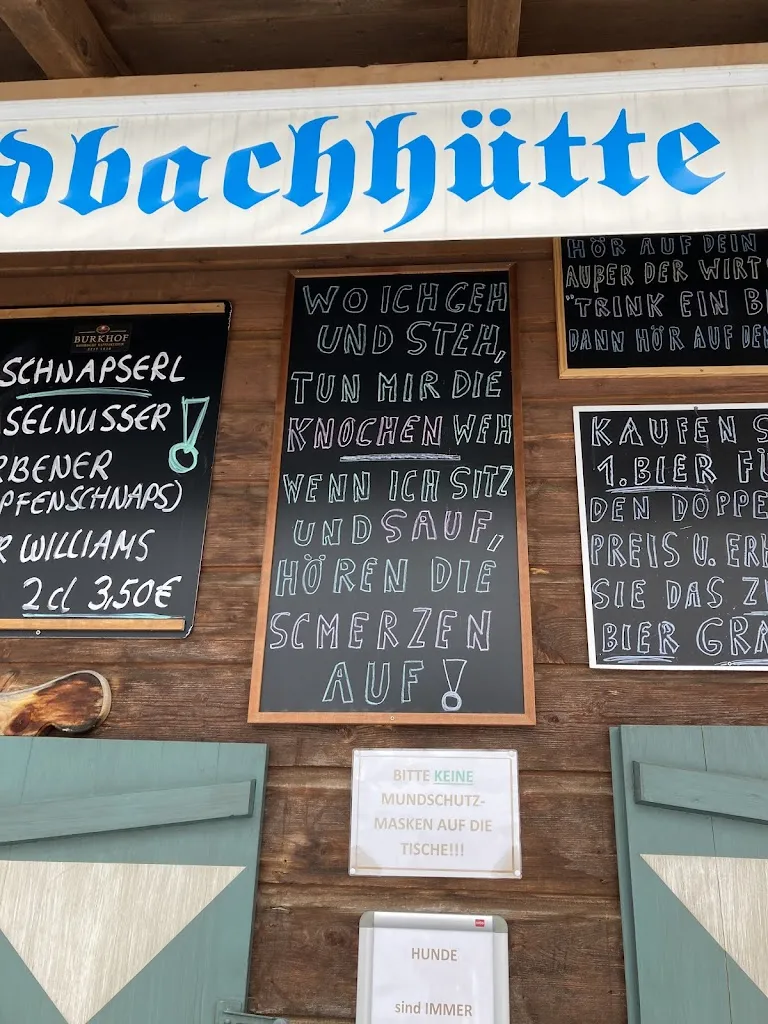 dbachhütte
BURKHOF
SCHNAPSERL
SELNUSSER!
RBENER
PFENSCHNAPS)
R WILLIAMS
2cl 3,50€
WO ICH GEH
UND STEH,
TUN MIR DIE
KNOCHEN WEH
WENN ICH SITZ
UND SAUF,
HÖREN DIE
SCMERZEN
AUF!
HÖR AUF DEIN
AUßER DER WIRT
"TRINK EIN B
DANN HÖR AUF DEN
KAUFEN S
1. BIER FÜ
DEN DOPPE
PREIS U. ERH
SIE DAS ZW
BIER GRA
BITTE KEINE
MUNDSCHUTZ-
MASKEN AUF DIE
TISCHE!!!
HUNDE
sind IMMER